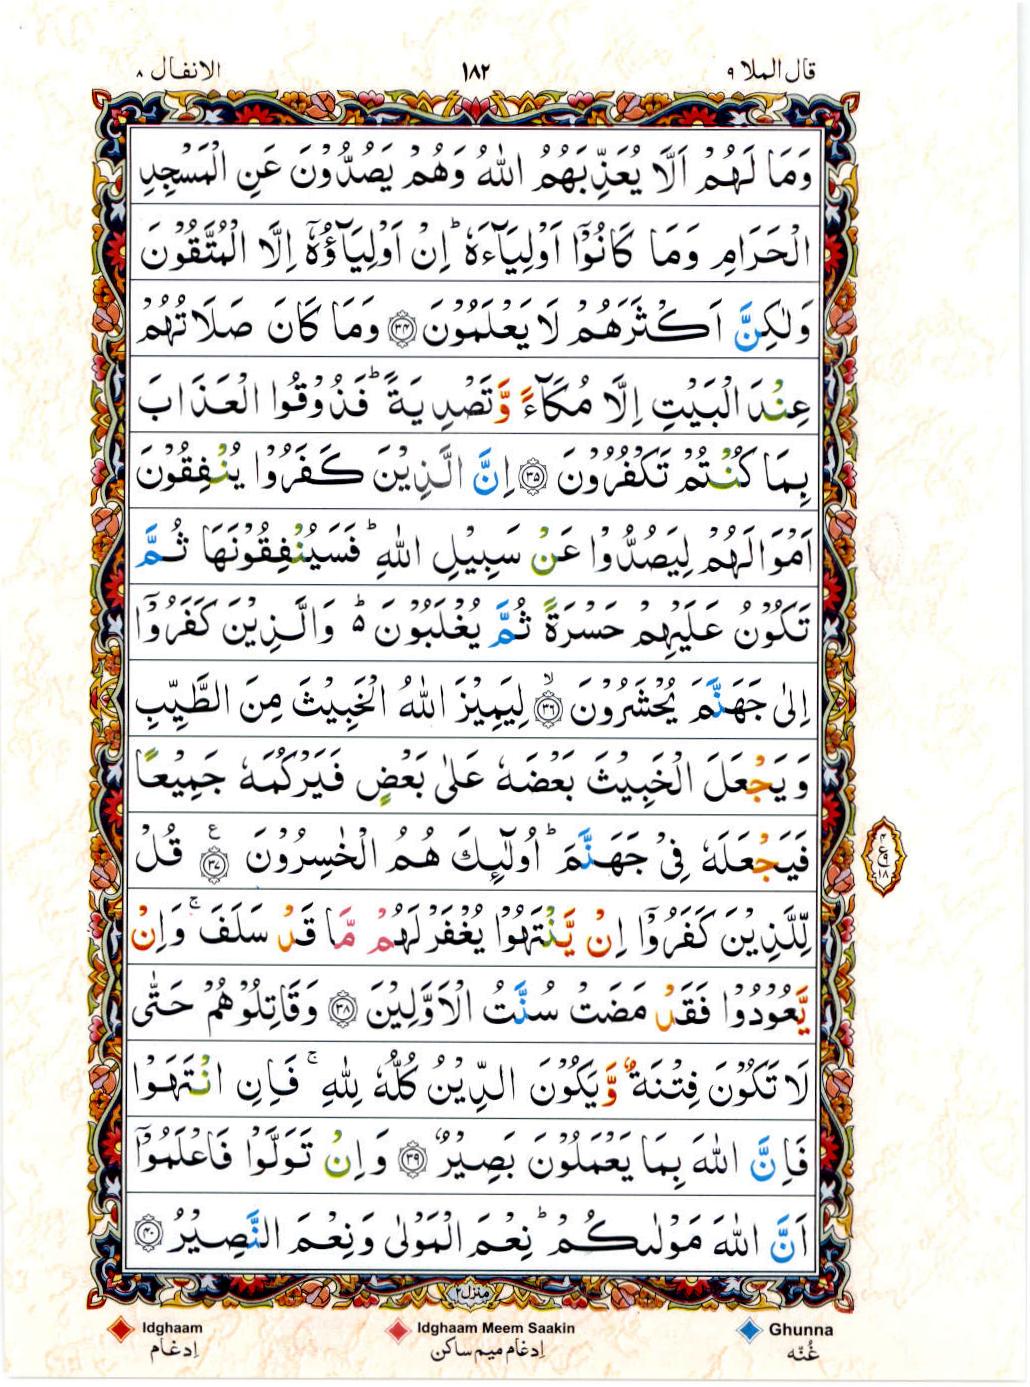 الانفال ٨
١٨٢
قال الملا ٩
وَمَا لَهُمْ اَلَّا يُعَذِّبَهُمُ اللّٰهُ وَهُمْ يَصُدُّوْنَ عَنِ الْمَسْجِدِ
الْحَرَامِ وَمَا كَانُوْۤا اَوْلِيَآءَهٗ ؕ اِنْ اَوْلِيَآؤُهٗۤ اِلَّا الْمُتَّقُوْنَ
وَلٰكِنَّ اَكْثَرَهُمْ لَا يَعْلَمُوْنَ ﴿۳۴﴾ وَمَا كَانَ صَلَاتُهُمْ
عِنْدَ الْبَيْتِ اِلَّا مُكَآءً وَّتَصْدِيَةً ؕ فَذُوْقُوا الْعَذَابَ
بِمَا كُنْتُمْ تَكْفُرُوْنَ ﴿۳۵﴾ اِنَّ الَّذِيْنَ كَفَرُوْا يُنْفِقُوْنَ
اَمْوَالَهُمْ لِيَصُدُّوْا عَنْ سَبِيْلِ اللّٰهِ ؕ فَسَيُنْفِقُوْنَهَا ثُمَّ
تَكُوْنُ عَلَيْهِمْ حَسْرَةً ثُمَّ يُغْلَبُوْنَ ؕ۬ وَالَّذِيْنَ كَفَرُوْۤا
اِلٰى جَهَنَّمَ يُحْشَرُوْنَ ﴿۳۶﴾ۙ لِيَمِيْزَ اللّٰهُ الْخَبِيْثَ مِنَ الطَّيِّبِ
وَيَجْعَلَ الْخَبِيْثَ بَعْضَهٗ عَلٰى بَعْضٍ فَيَرْكُمَهٗ جَمِيْعًا
فَيَجْعَلَهٗ فِىْ جَهَنَّمَ ؕ اُولٰٓئِكَ هُمُ الْخٰسِرُوْنَ ﴿۳۷﴾ ع قُلْ
لِّلَّذِيْنَ كَفَرُوْۤا اِنْ يَّنْتَهُوْا يُغْفَرْ لَهُمْ مَّا قَدْ سَلَفَ ۚ وَاِنْ
يَّعُوْدُوْا فَقَدْ مَضَتْ سُنَّتُ الْاَوَّلِيْنَ ﴿۳۸﴾ وَقَاتِلُوْهُمْ حَتّٰى
لَا تَكُوْنَ فِتْنَةٌ وَّيَكُوْنَ الدِّيْنُ كُلُّهٗ لِلّٰهِ ۚ فَاِنِ انْتَهَوْا
فَاِنَّ اللّٰهَ بِمَا يَعْمَلُوْنَ بَصِيْرٌ ﴿۳۹﴾ وَاِنْ تَوَلَّوْا فَاعْلَمُوْۤا
اَنَّ اللّٰهَ مَوْلٰٮكُمْ ؕ نِعْمَ الْمَوْلٰى وَنِعْمَ النَّصِيْرُ ﴿۴۰﴾
منزل ٢
Idghaam
Idghaam Meem Saakin
Ghunna
اِدغام
اِدغام میم ساکن
غُنّه